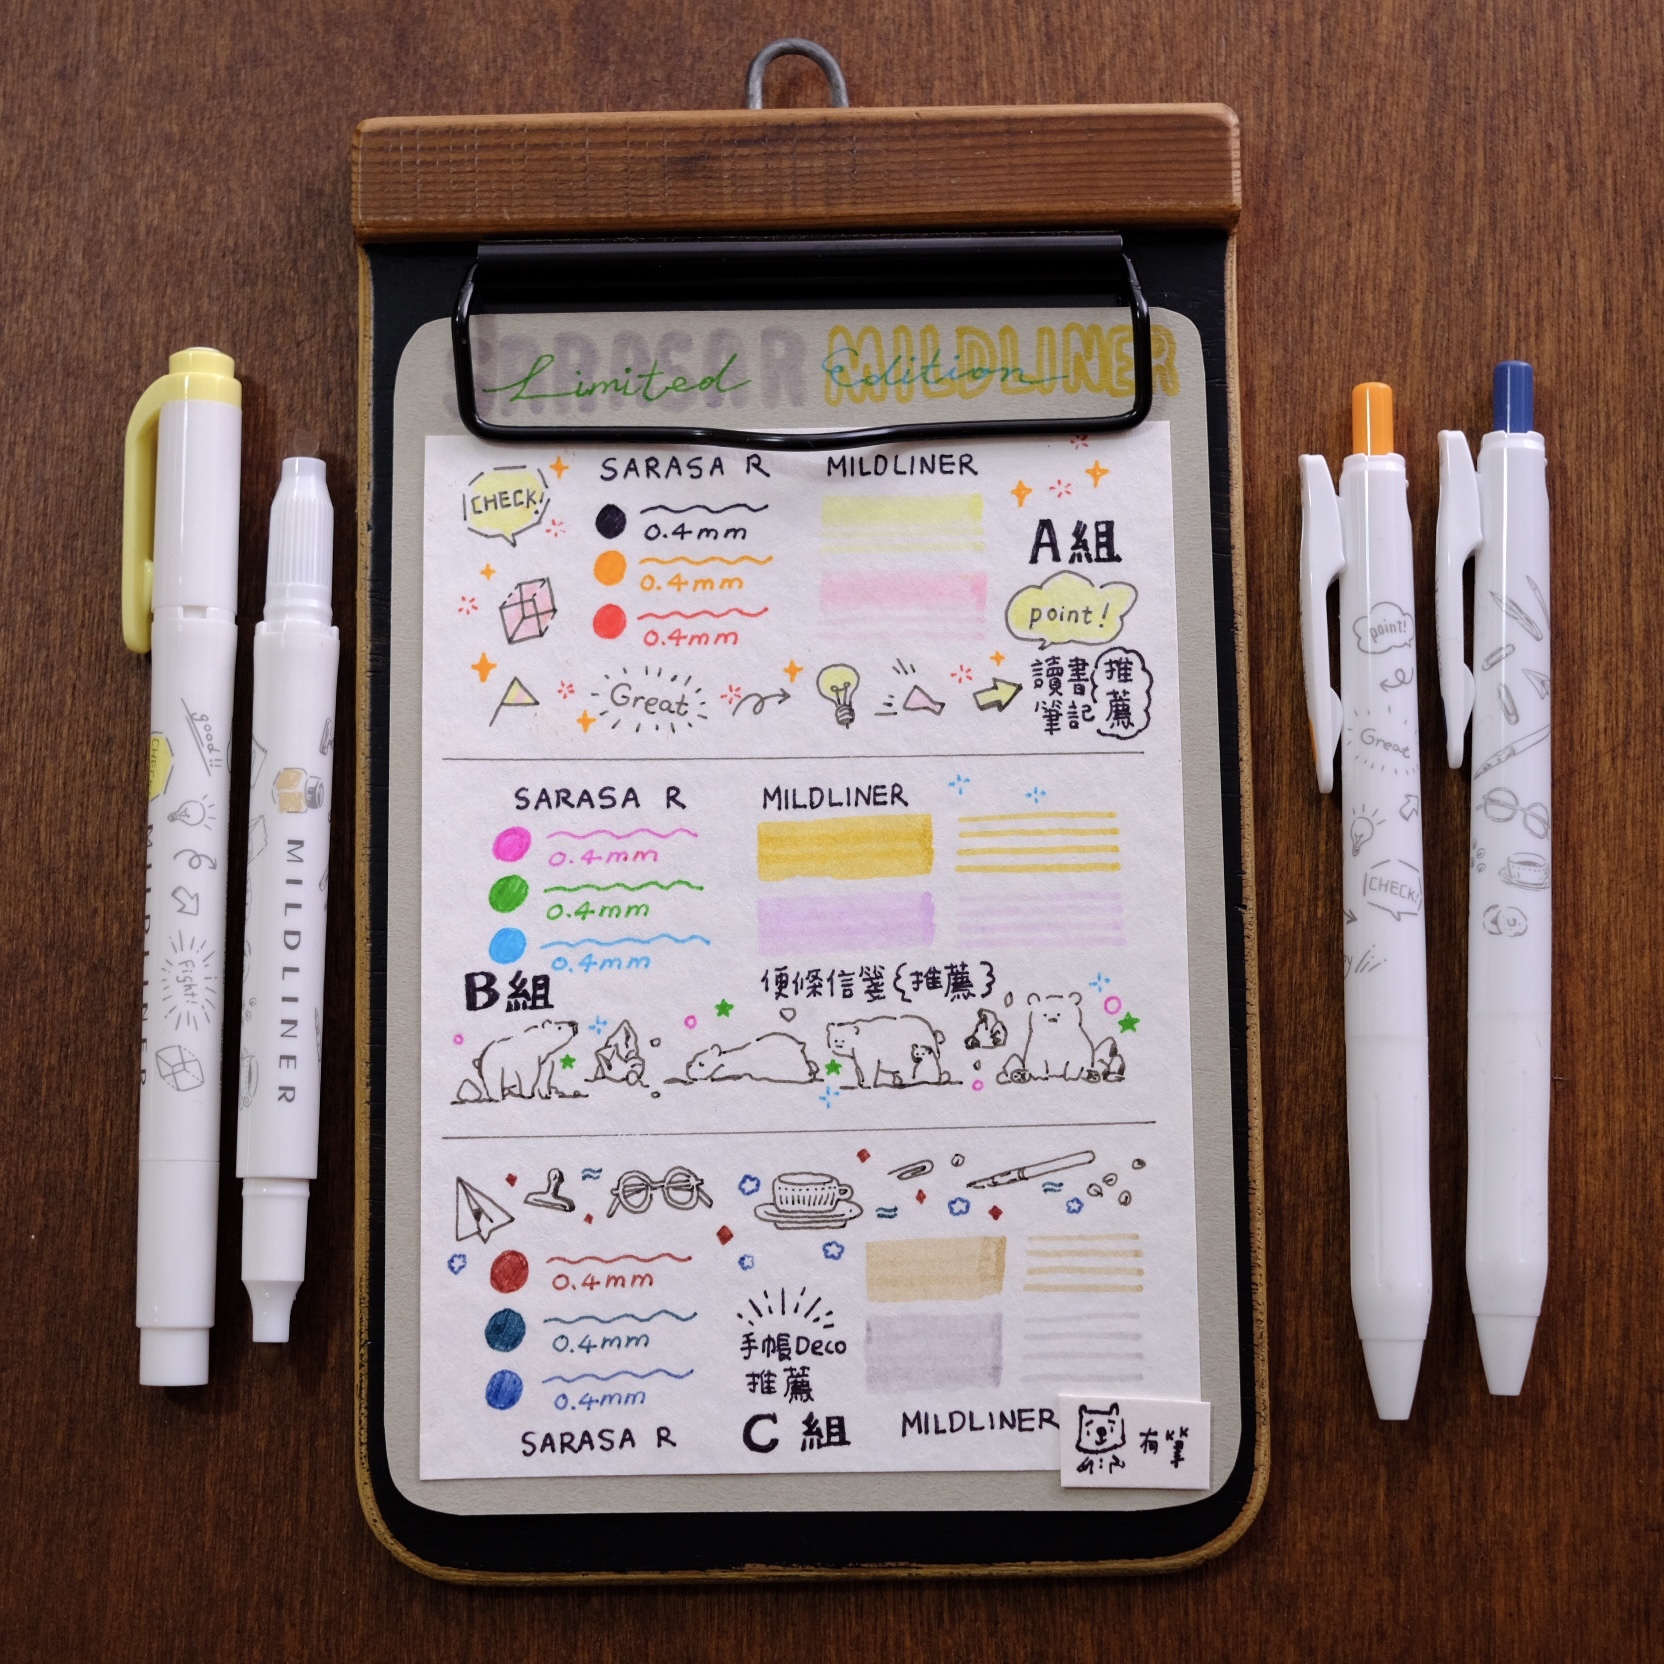 SARASA R MILDLINER
Limited Edition
SARASA R
MILDLINER
CHECK!
0.4mm
0.4mm
0.4mm
A組
point!
Great
讀書
筆記
推薦
SARASA R
MILDLINER
0.4mm
0.4mm
0.4mm
B組
便條信箋{推薦}
0.4mm
0.4mm
0.4mm
手帳Deco
推薦
SARASA R
C組
MILDLINER
有筆
good!!
CHECK
Fight!
MILDLINER
MILDLINER
point!
Great
CHECK!